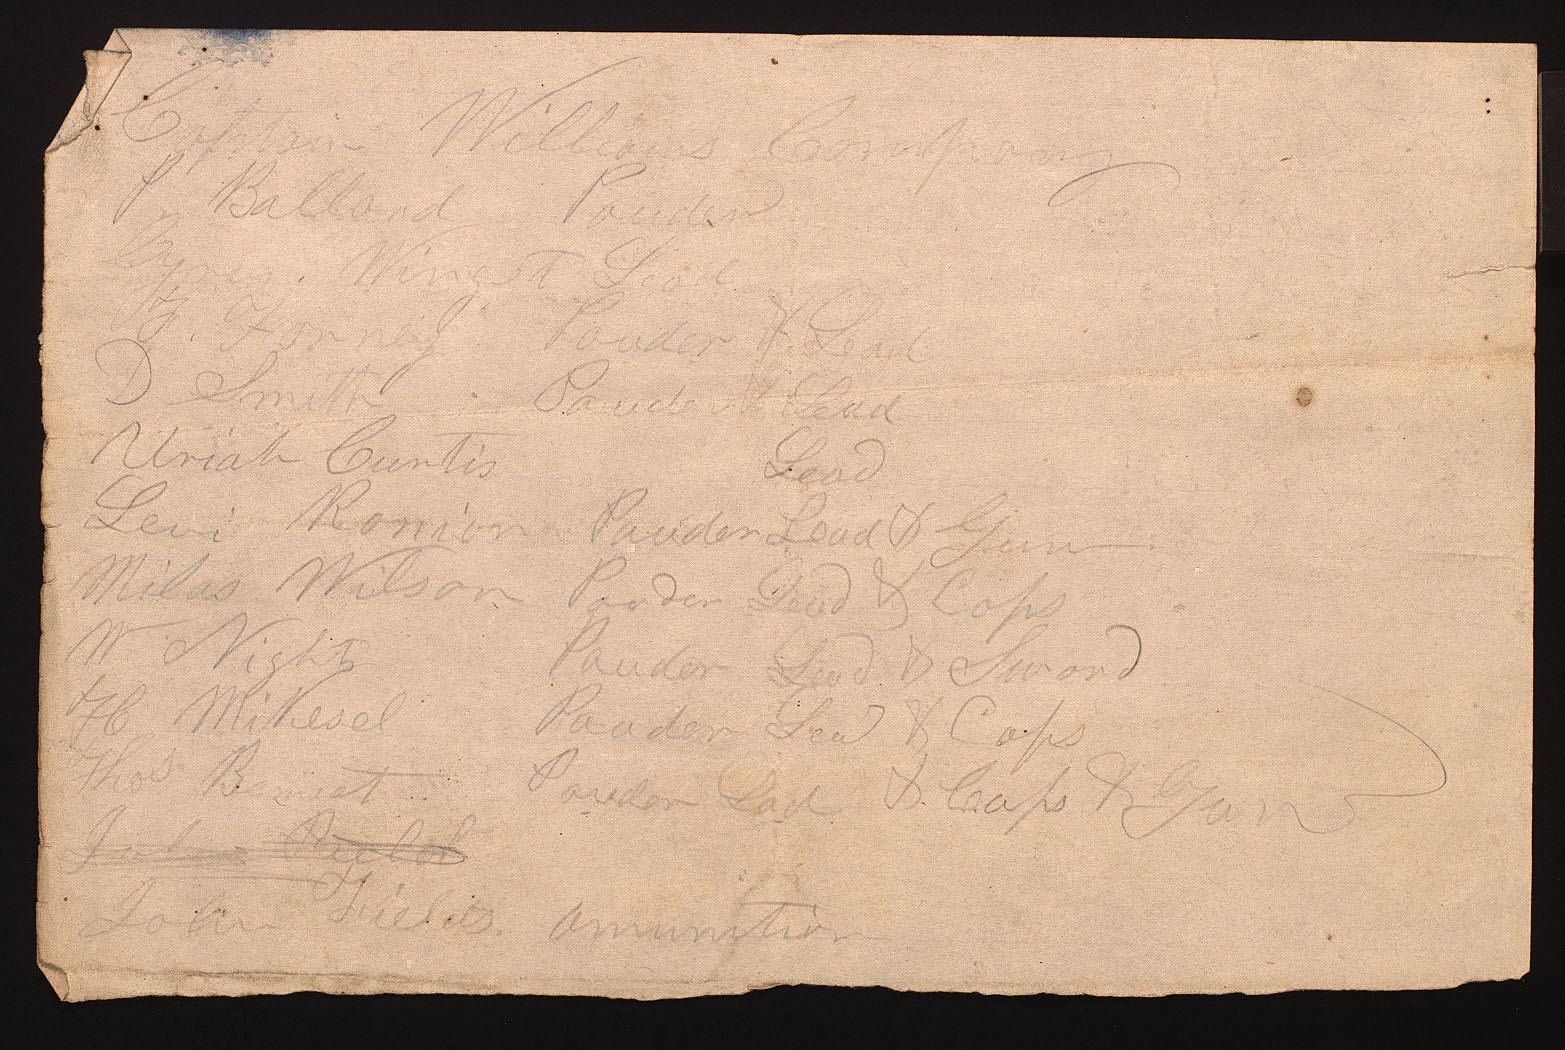 Captain Williams Company
P Ballard Pouder
Cyrus Winget Lead
F. Forney Pouder & Lead
D Smith Pouder & Lead
Uriah Curtis Lead
Levi Pouder Lead & Gun
Milas Wilson Pouder Lead & Caps
W Night Pouder Lead & Sword
H Mikesel Pouder Lead & Caps
Thos Bennet Pouder Lad & Caps & Gun
John
John Fields. amunition